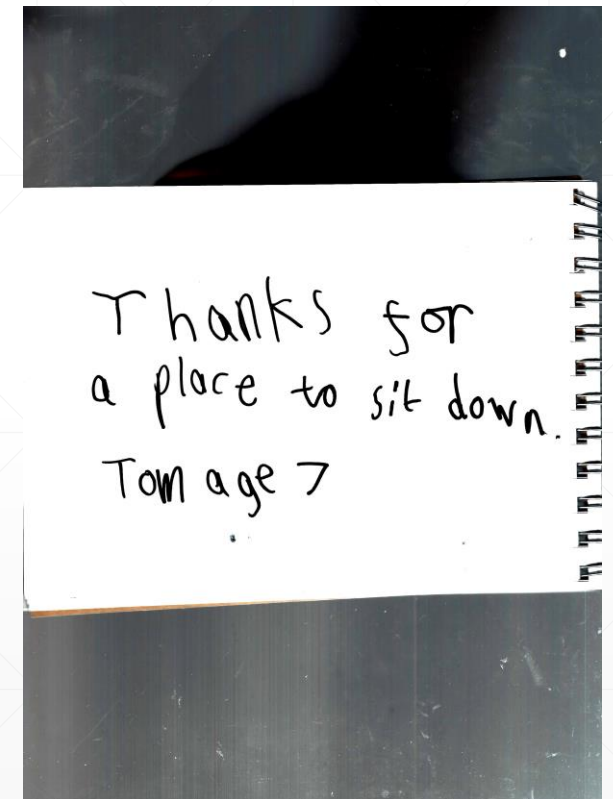 Thanks for
a place to sit down.
Tom age 7